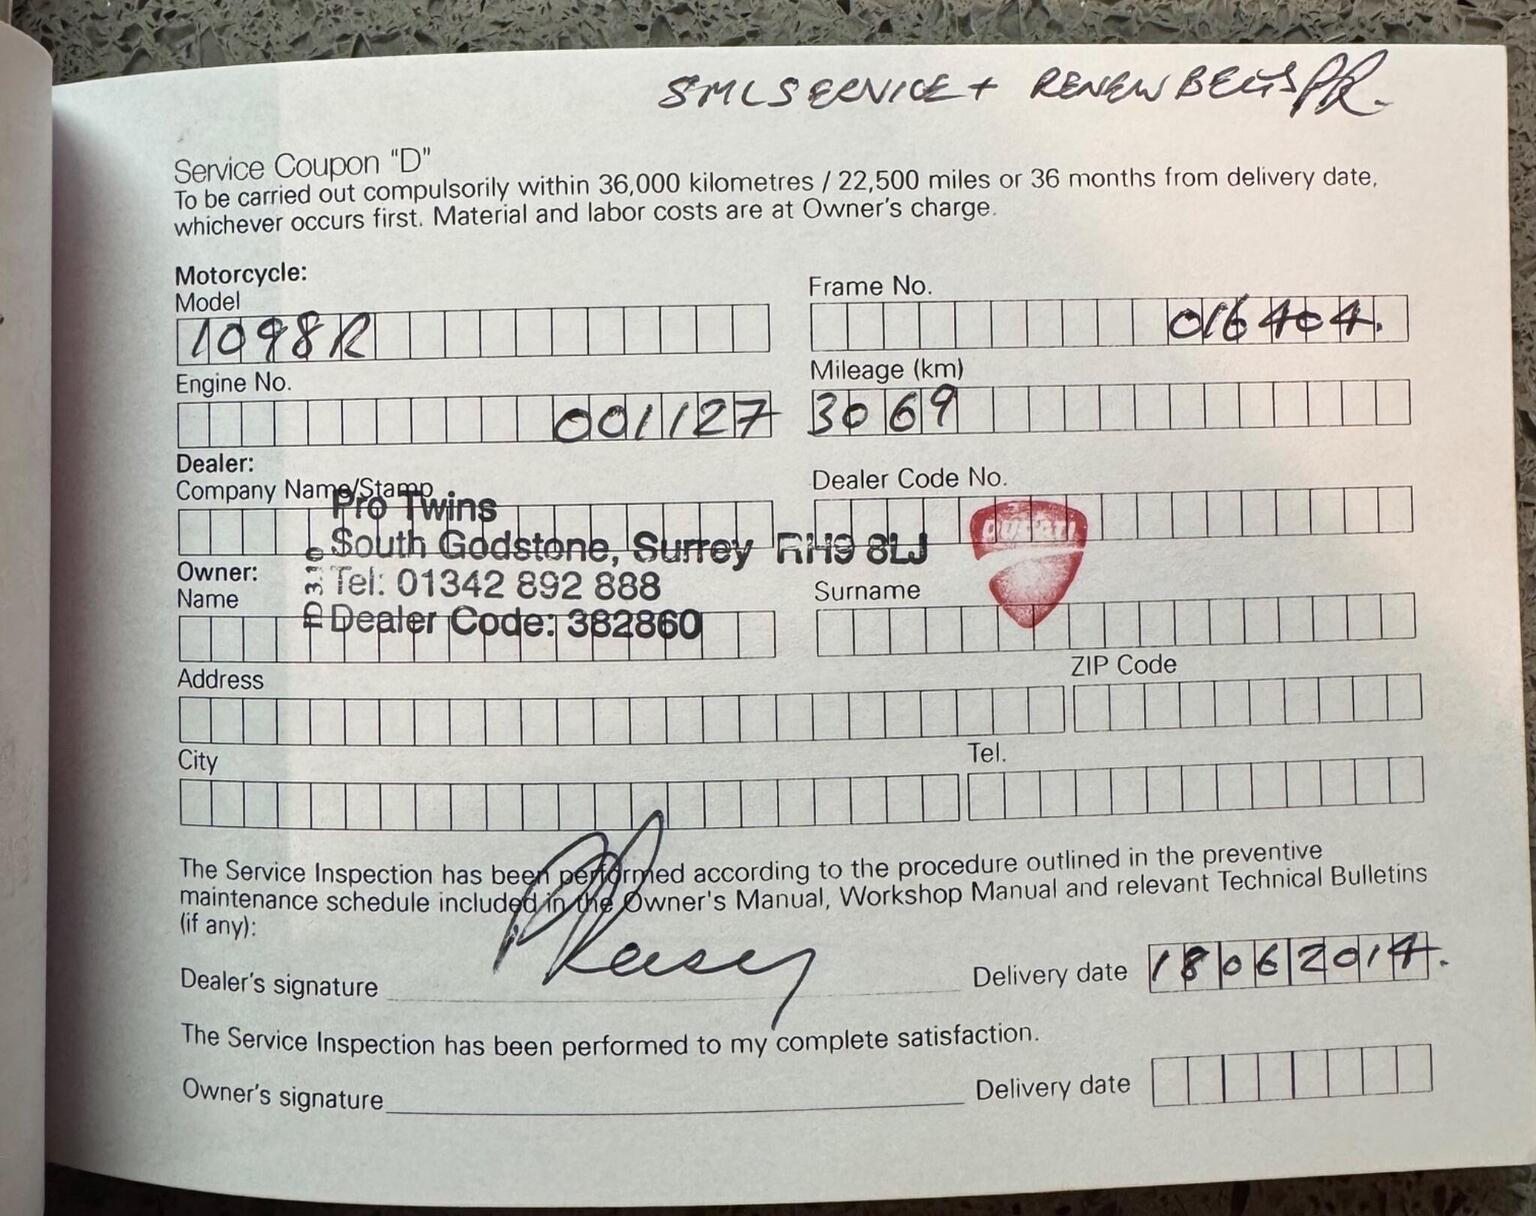 SML SERVICE + RENEW BELTS PR.
Service Coupon "D"
To be carried out compulsorily within 36,000 kilometres / 22,500 miles or 36 months from delivery date,
whichever occurs first. Material and labor costs are at Owner's charge.
Motorcycle:
Model
1098R
Frame No.
016404.
Engine No.
001127
Mileage (km)
3069
Dealer:
Company Name/Stamp
Pro Twins
South Godstone, Surrey RH9 8LJ
Tel: 01342 892 888
Dealer Code: 382860
Dealer Code No.
DUCATI
Owner:
Name
Surname
Address
ZIP Code
City
Tel.
The Service Inspection has been performed according to the procedure outlined in the preventive
maintenance schedule included in the Owner's Manual, Workshop Manual and relevant Technical Bulletins
(if any):
Dealer's signature
Delivery date 18062014.
The Service Inspection has been performed to my complete satisfaction.
Owner's signature
Delivery date